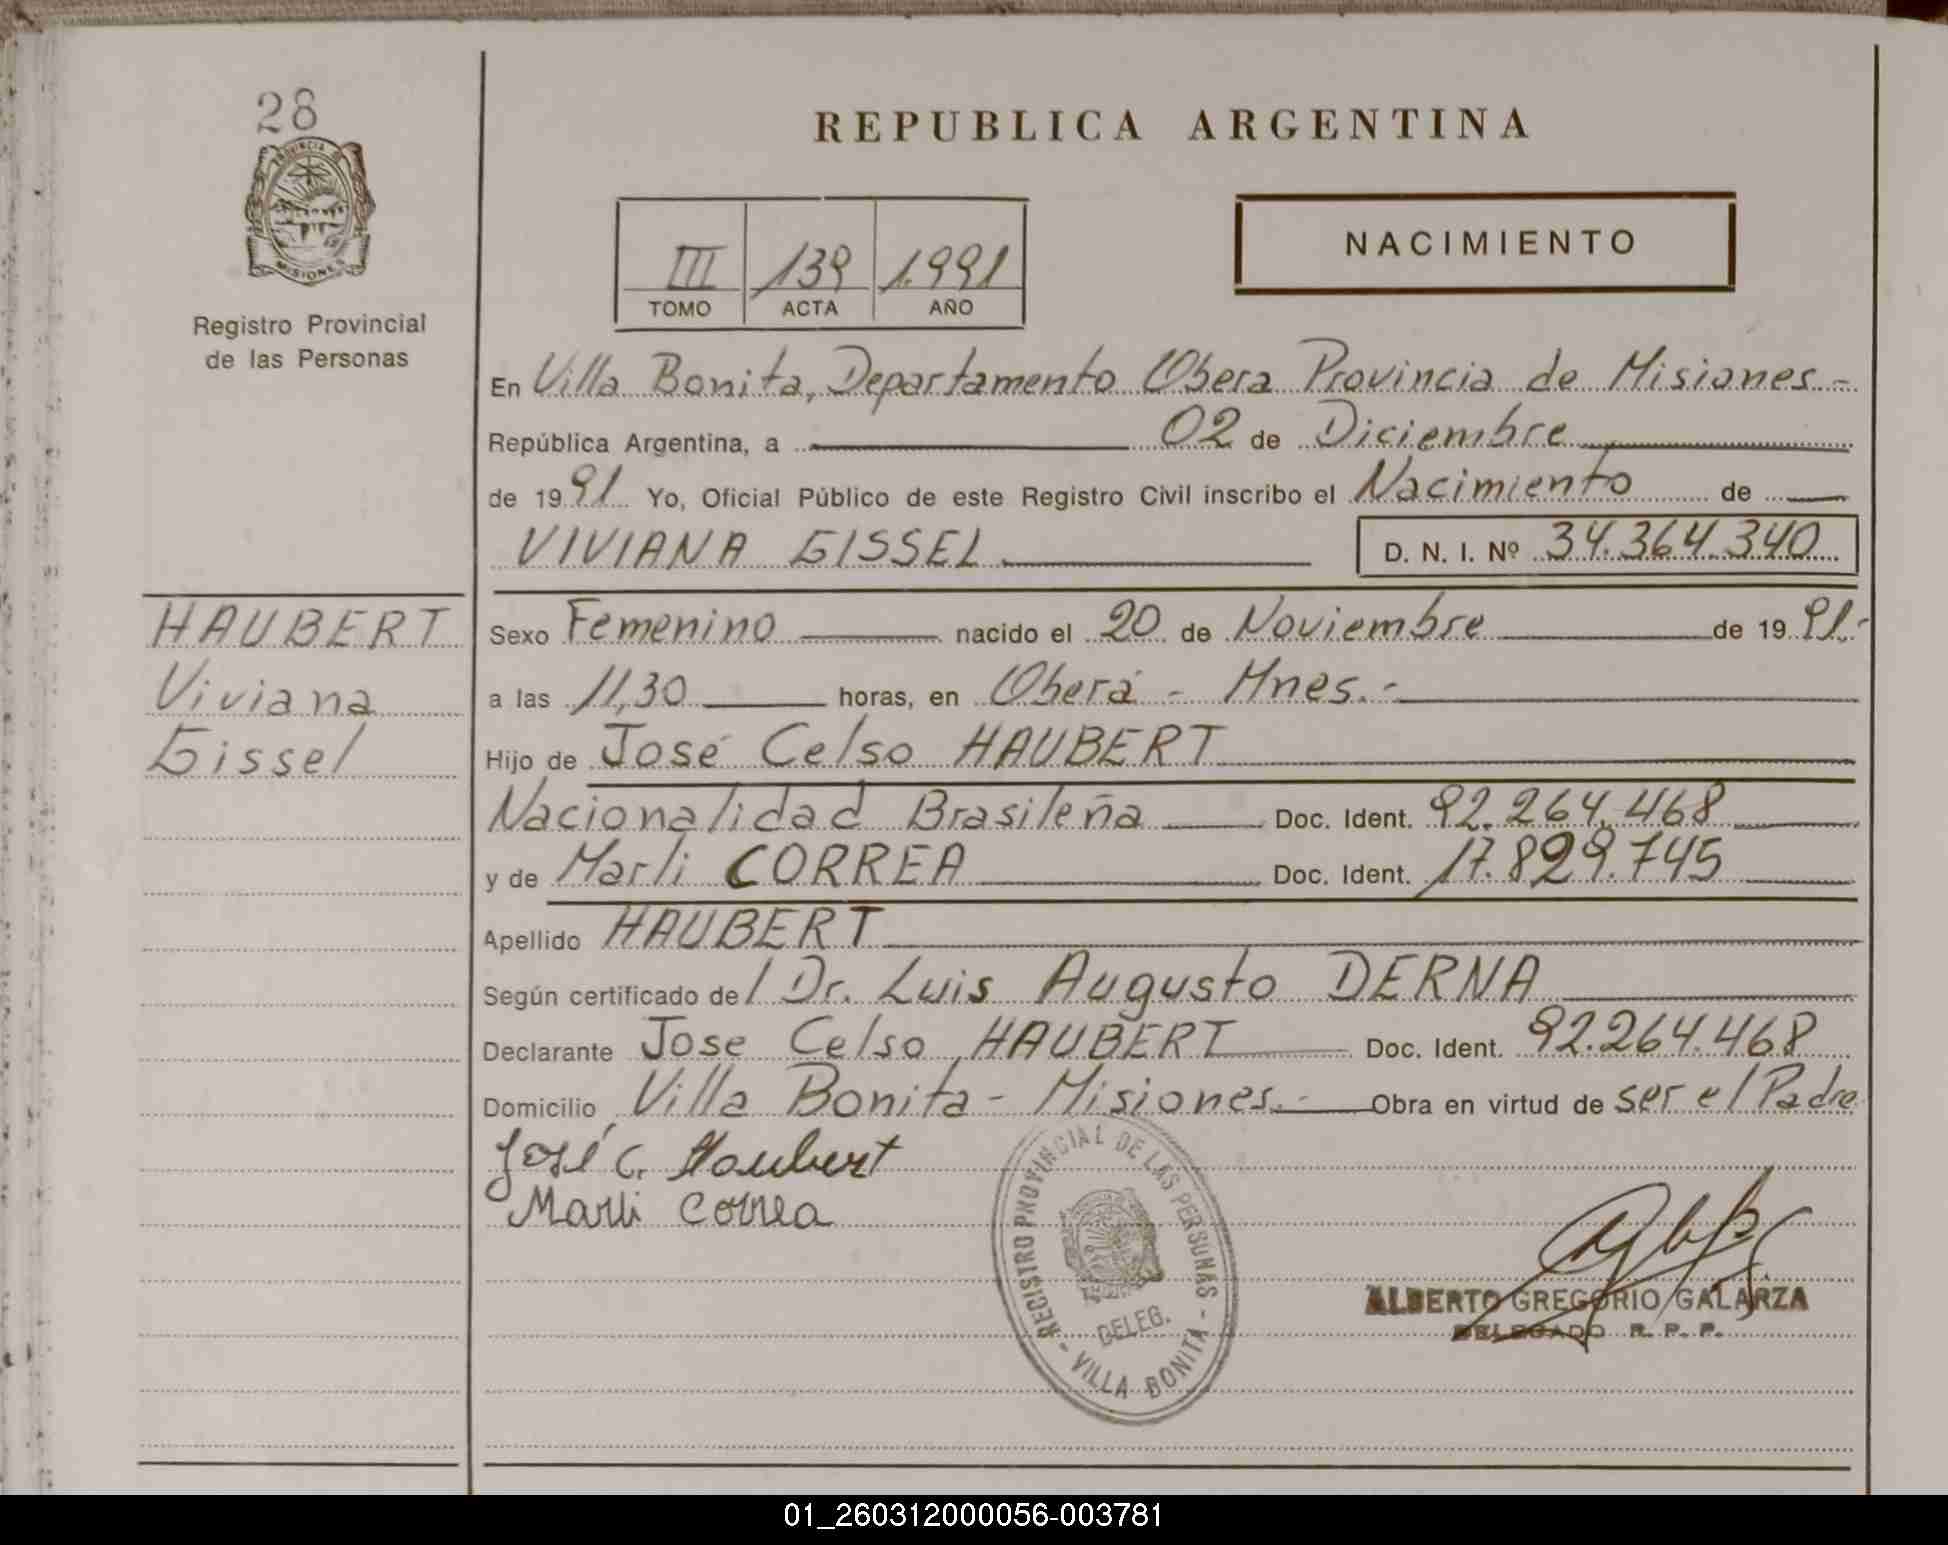 28
PROVINCIA DE
MISIONES
Registro Provincial
de las Personas
HAUBERT
Viviana
Gissel
REPUBLICA ARGENTINA
III 139 1.991
TOMO ACTA AÑO
NACIMIENTO
En Villa Bonita, Departamento Obera Provincia de Misiones.-
República Argentina, a 02 de Diciembre
de 1991 Yo, Oficial Público de este Registro Civil inscribo el Nacimiento de
VIVIANA GISSEL D. N. I. Nº 34.364.340
Sexo Femenino nacido el 20 de Noviembre de 1991.-
a las 11,30 horas, en Oberá - Mnes.-
Hijo de José Celso HAUBERT
Nacionalidad Brasileña Doc. Ident. 92.264.468
y de Marli CORREA Doc. Ident. 17.829.745
Apellido HAUBERT
Según certificado del Dr. Luis Augusto DERNA
Declarante Jose Celso HAUBERT Doc. Ident. 92.264.468
Domicilio Villa Bonita - Misiones.- Obra en virtud de ser el Padre
José C. Haubert
Marli Correa
REGISTRO PROVINCIAL DE LAS PERSONAS
DELEG.
- VILLA BONITA -
ALBERTO GREGORIO GALARZA
DELEGADO R. P. P.
01_260312000056-003781